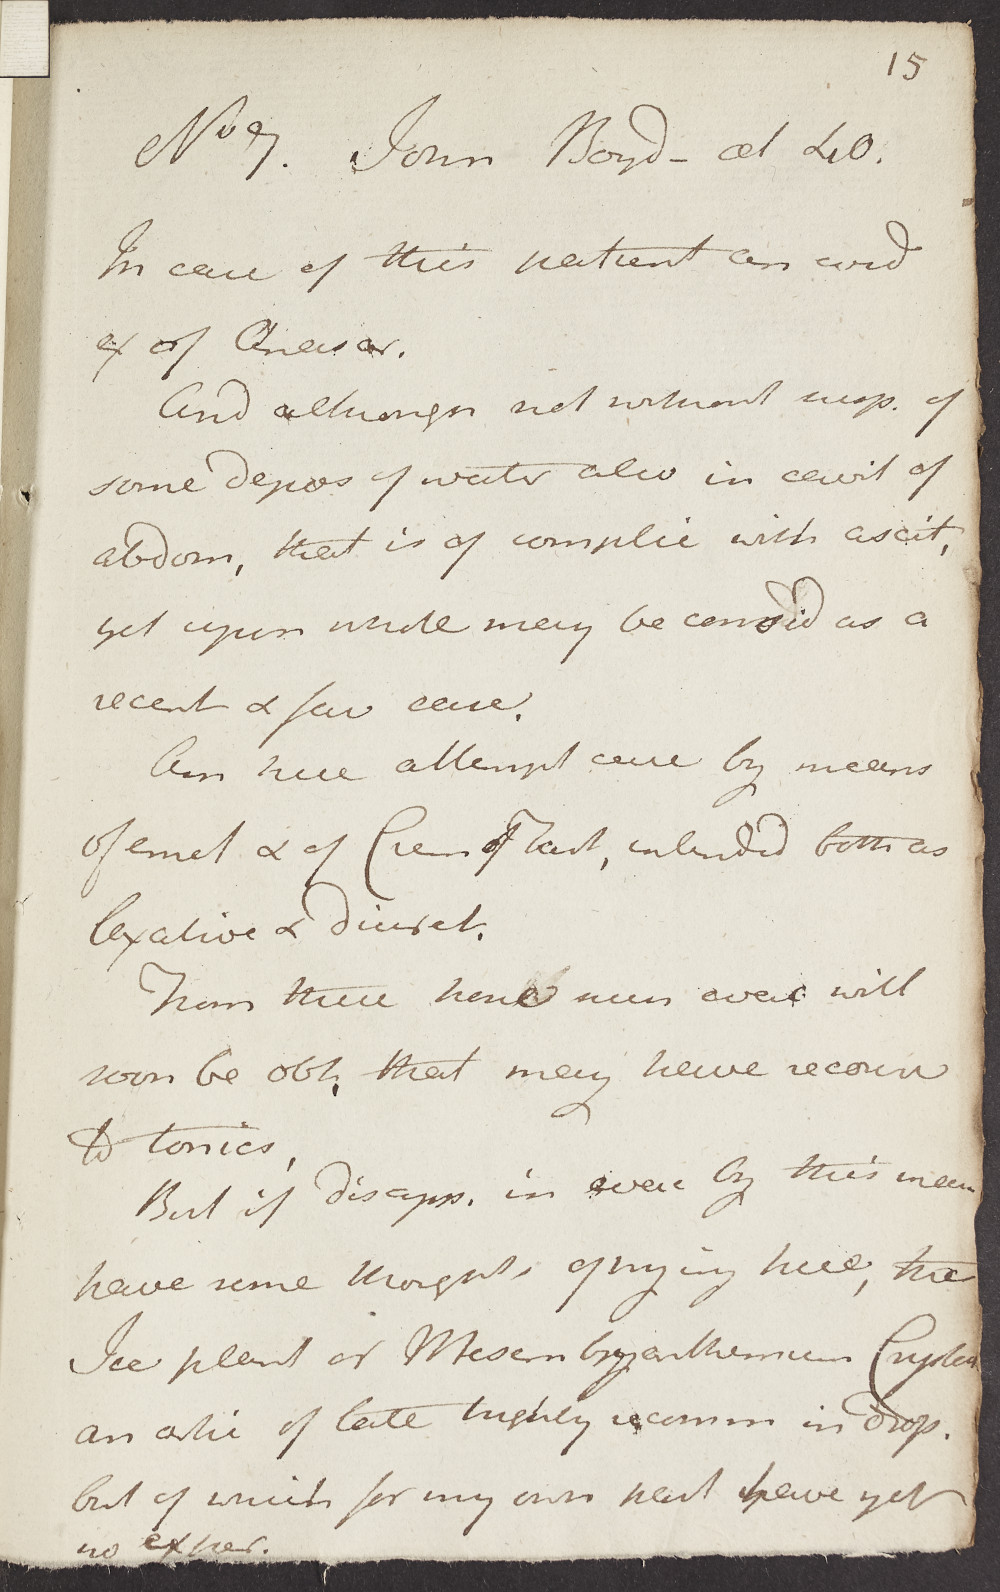 15
No 7. John Boyd - æt 40.
In case of this patient an evid
ex of Anasar.
And although not without susp. of
some depos of water also in cavit of
abdom, that is of complic with ascit,
yet upon whole may be considd as a
recent & fav case.
Am here attempt cure by means
of emet & of Crem of Tart, intendd both as
laxative & diuret.
From these hope such evac will
soon be obt, that may have recour
to tonics,
But if disapp. in evac by this mean
have some thoughts of trying here, the
Ice plant or Mesembryanthemum Crystal
an artic of late highly recomm in drop.
but of which for my own part have yet
no exper.